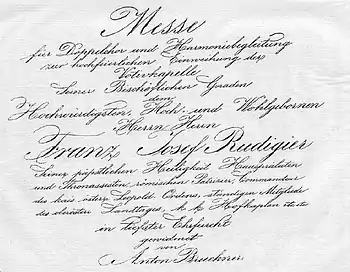 Messe
für Doppelchor und Harmoniebegleitung
zur hochfeierlichen Einweihung der
Votivkapelle
Seiner Bischöflichen Gnaden
dem
Hochwürdigsten, Hoch- und Wohlgebornen
Herrn Herrn
Franz Josef Rudigier
Seiner päpstlichen Heiligkeit Hausprälaten
und Thronassisten römischen Patrizier, Commandeur
des kais. österr. Leopold-Ordens, ständigen Mitgliede
des oberösterr. Landtages k. k. Hofkaplan etc etc
in tiefster Ehrfurcht
gewidmet
von
Anton Bruckner